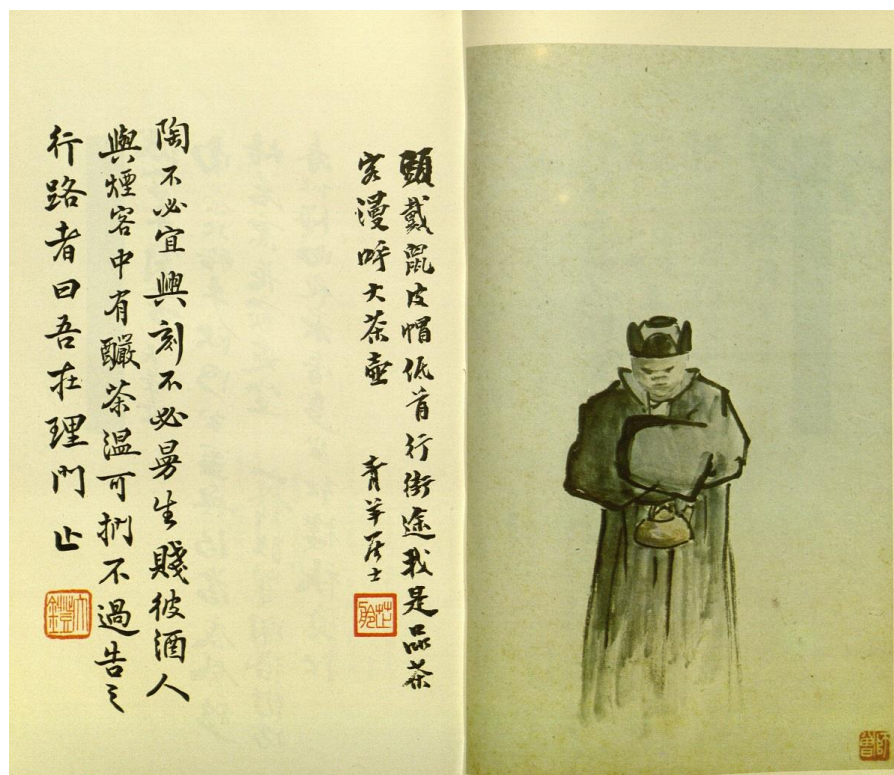 頭戴鼠皮帽低首行街途我是品茶
客漫呼大茶壺
青羊居士
芷舲
陶不必宜興刻不必曼生賤彼酒人
與煙客中有釅茶溫可捫不過告之
行路者曰吾在理門 止
師曾